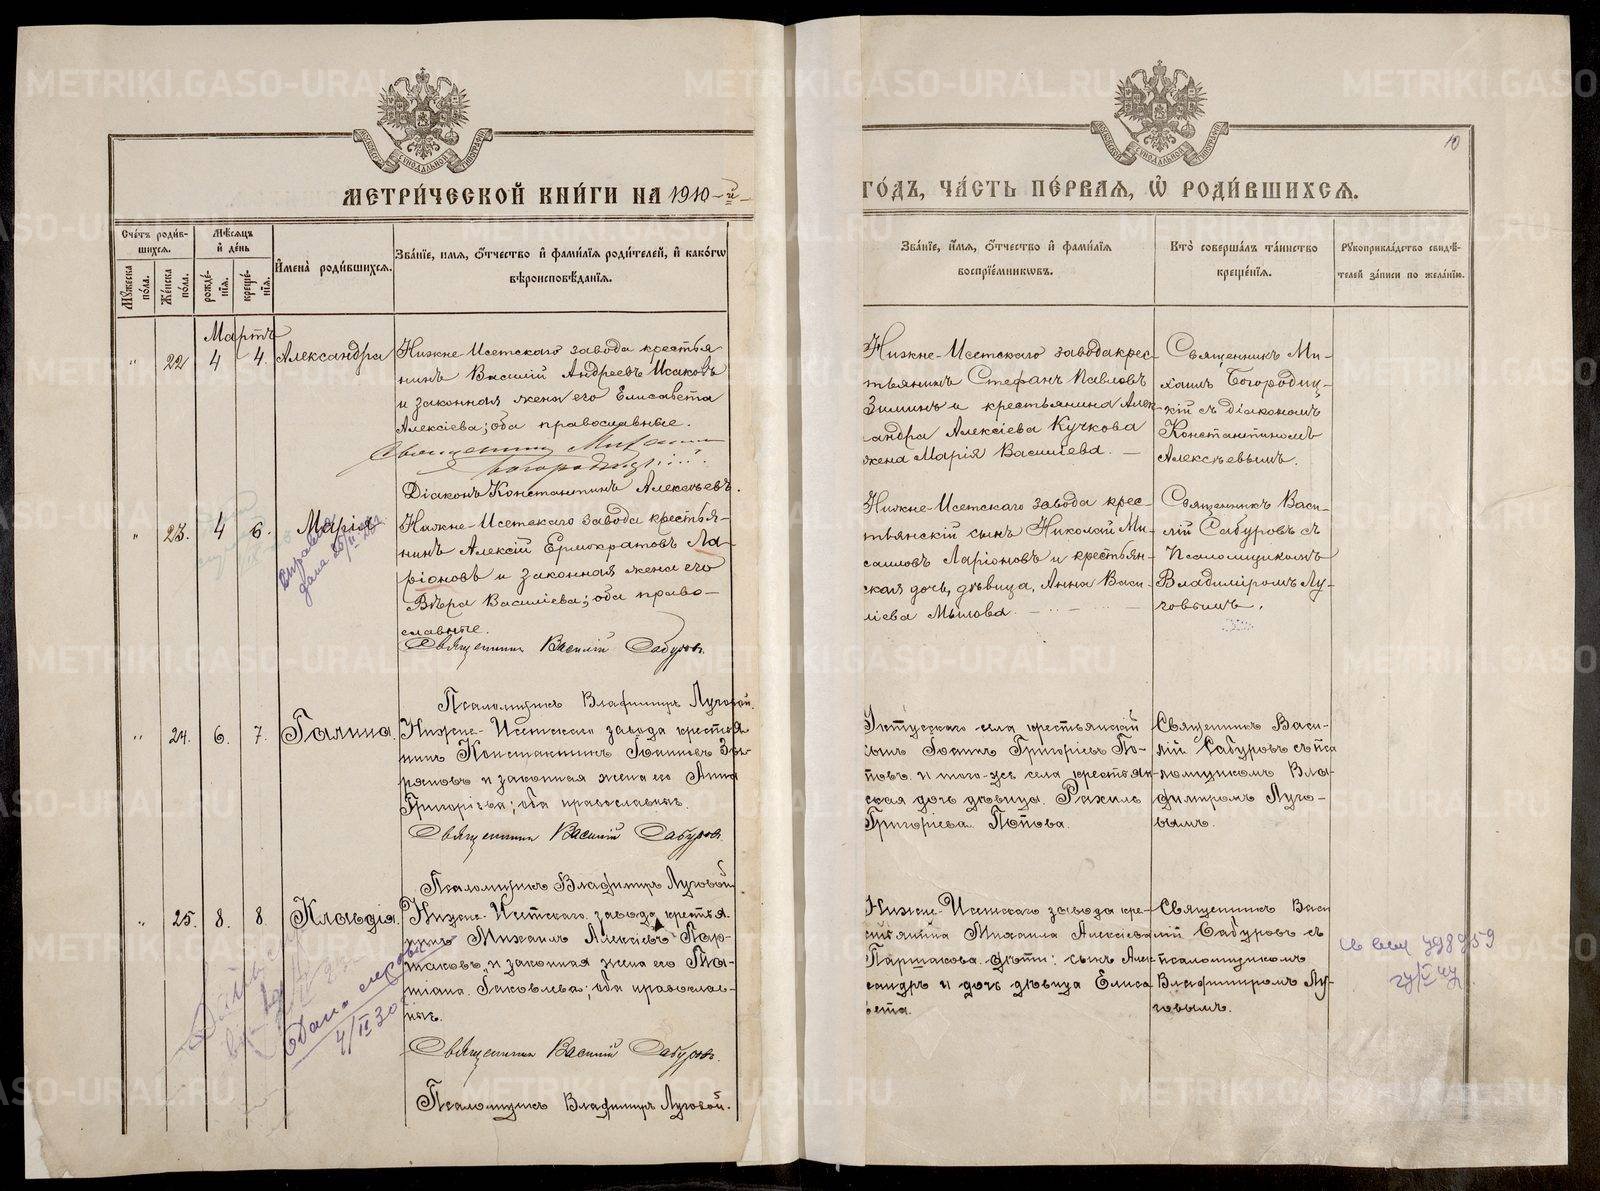 10
МЕТРИ́ЧЕСКОЙ КНИ́ГИ НА 1910-й
ГО́ДЪ, ЧА́СТЬ ПЕ́РВАЯ, Ѡ РОДИ́ВШИХСЯ.
Сче́тъ роди́в-
шихся.
Му́жеска по́ла.
Же́нска по́ла.
Мѣ́сяцъ
и́ де́нь
рожде́-
нїя.
креще́-
нїя.
И́мена̀ роди́вшихся.
Зва́нїе, и́мя, о́тчество и́ фами́лїя роди́телей, и́ како́гѡ
вѣроисповѣ́данїя.
Зва́нїе, и́мя, о́тчество и́ фами́лїя
воспрїе́мниковъ.
Кто̀ соверша́лъ та́инство
креще́нїя.
Рꙋкоприкла́дство свидѣ́-
телей за́писи по жела́нїю.
Мартъ
" 22 4 4. Александра
Нижне-Исетскаго завода крестья
нинъ Василій Андреевъ Исаковъ
и законная жена его Елисавета
Алексіева; оба православные.
Священникъ Михаилъ
Богородицкій.
Діаконъ Константинъ Алексѣевъ.
Нижне-Исетскаго завода крес-
тьянинъ Стефанъ Павловъ
Зиминъ и крестьянина Алек-
сандра Алексіева Кучкова
жена Марія Василіева. —
Священникъ Ми-
хаилъ Богородиц-
кій съ діакономъ
Константиномъ
Алексѣевымъ.
" 23. 4 6. Марія
Нижне-Исетскаго завода крестья-
нинъ Алексій Ермократовъ Ла-
ріоновъ и законная жена его
Вѣра Василіева; оба право-
славные.
Священникъ Василій Сабуровъ.
Псаломщикъ Владимиръ Луговой.
Нижне-Исетскаго завода крес-
тьянскій сынъ Николай Ми-
Ларіоновъ и крестьян-
ская дочь, дѣвица, Анна Васи-
ліева Мылова.
Священникъ Васи-
лій Сабуровъ съ
Псаломщикомъ
Владиміромъ Лу-
говымъ.
" 24. 6. 7. Галина.
Нижне-Исетскаго завода крестья
нинъ Константинъ Іоанновъ Зы-
ряновъ и законная жена его Анна
Григоріева; оба православные.
Священникъ Василій Сабуровъ.
Псаломщикъ Владимиръ Луговой.
села крестьянскій
сынъ Іоаннъ Григоріевъ По-
повъ и того-же села крестьян
ская дочь дѣвица Рахиль
Григоріева Попова.
Священникъ Васи-
лій Сабуровъ съ пса
ломщикомъ Вла-
димиромъ Луго-
вымъ.
" 25. 8. 8. Клавдія.
Нижне-Исетскаго завода крестья-
нинъ Михаилъ Алексіевъ Пар-
шаковъ, и законная жена его Та-
тіана Іаковлева; оба православ-
ные.
Священникъ Василій Сабуровъ.
Псаломщикъ Владимиръ Луговой.
Нижне-Исетскаго завода кре-
стьянина Михаила Алексіева
Паршакова дѣти: сынъ Алек-
сандръ и дочь дѣвица Елиса-
вета.
Священникъ Васи
лій Сабуровъ съ
псаломщикомъ
Владимиромъ Лу-
говымъ.
Дана справка
4/II 30